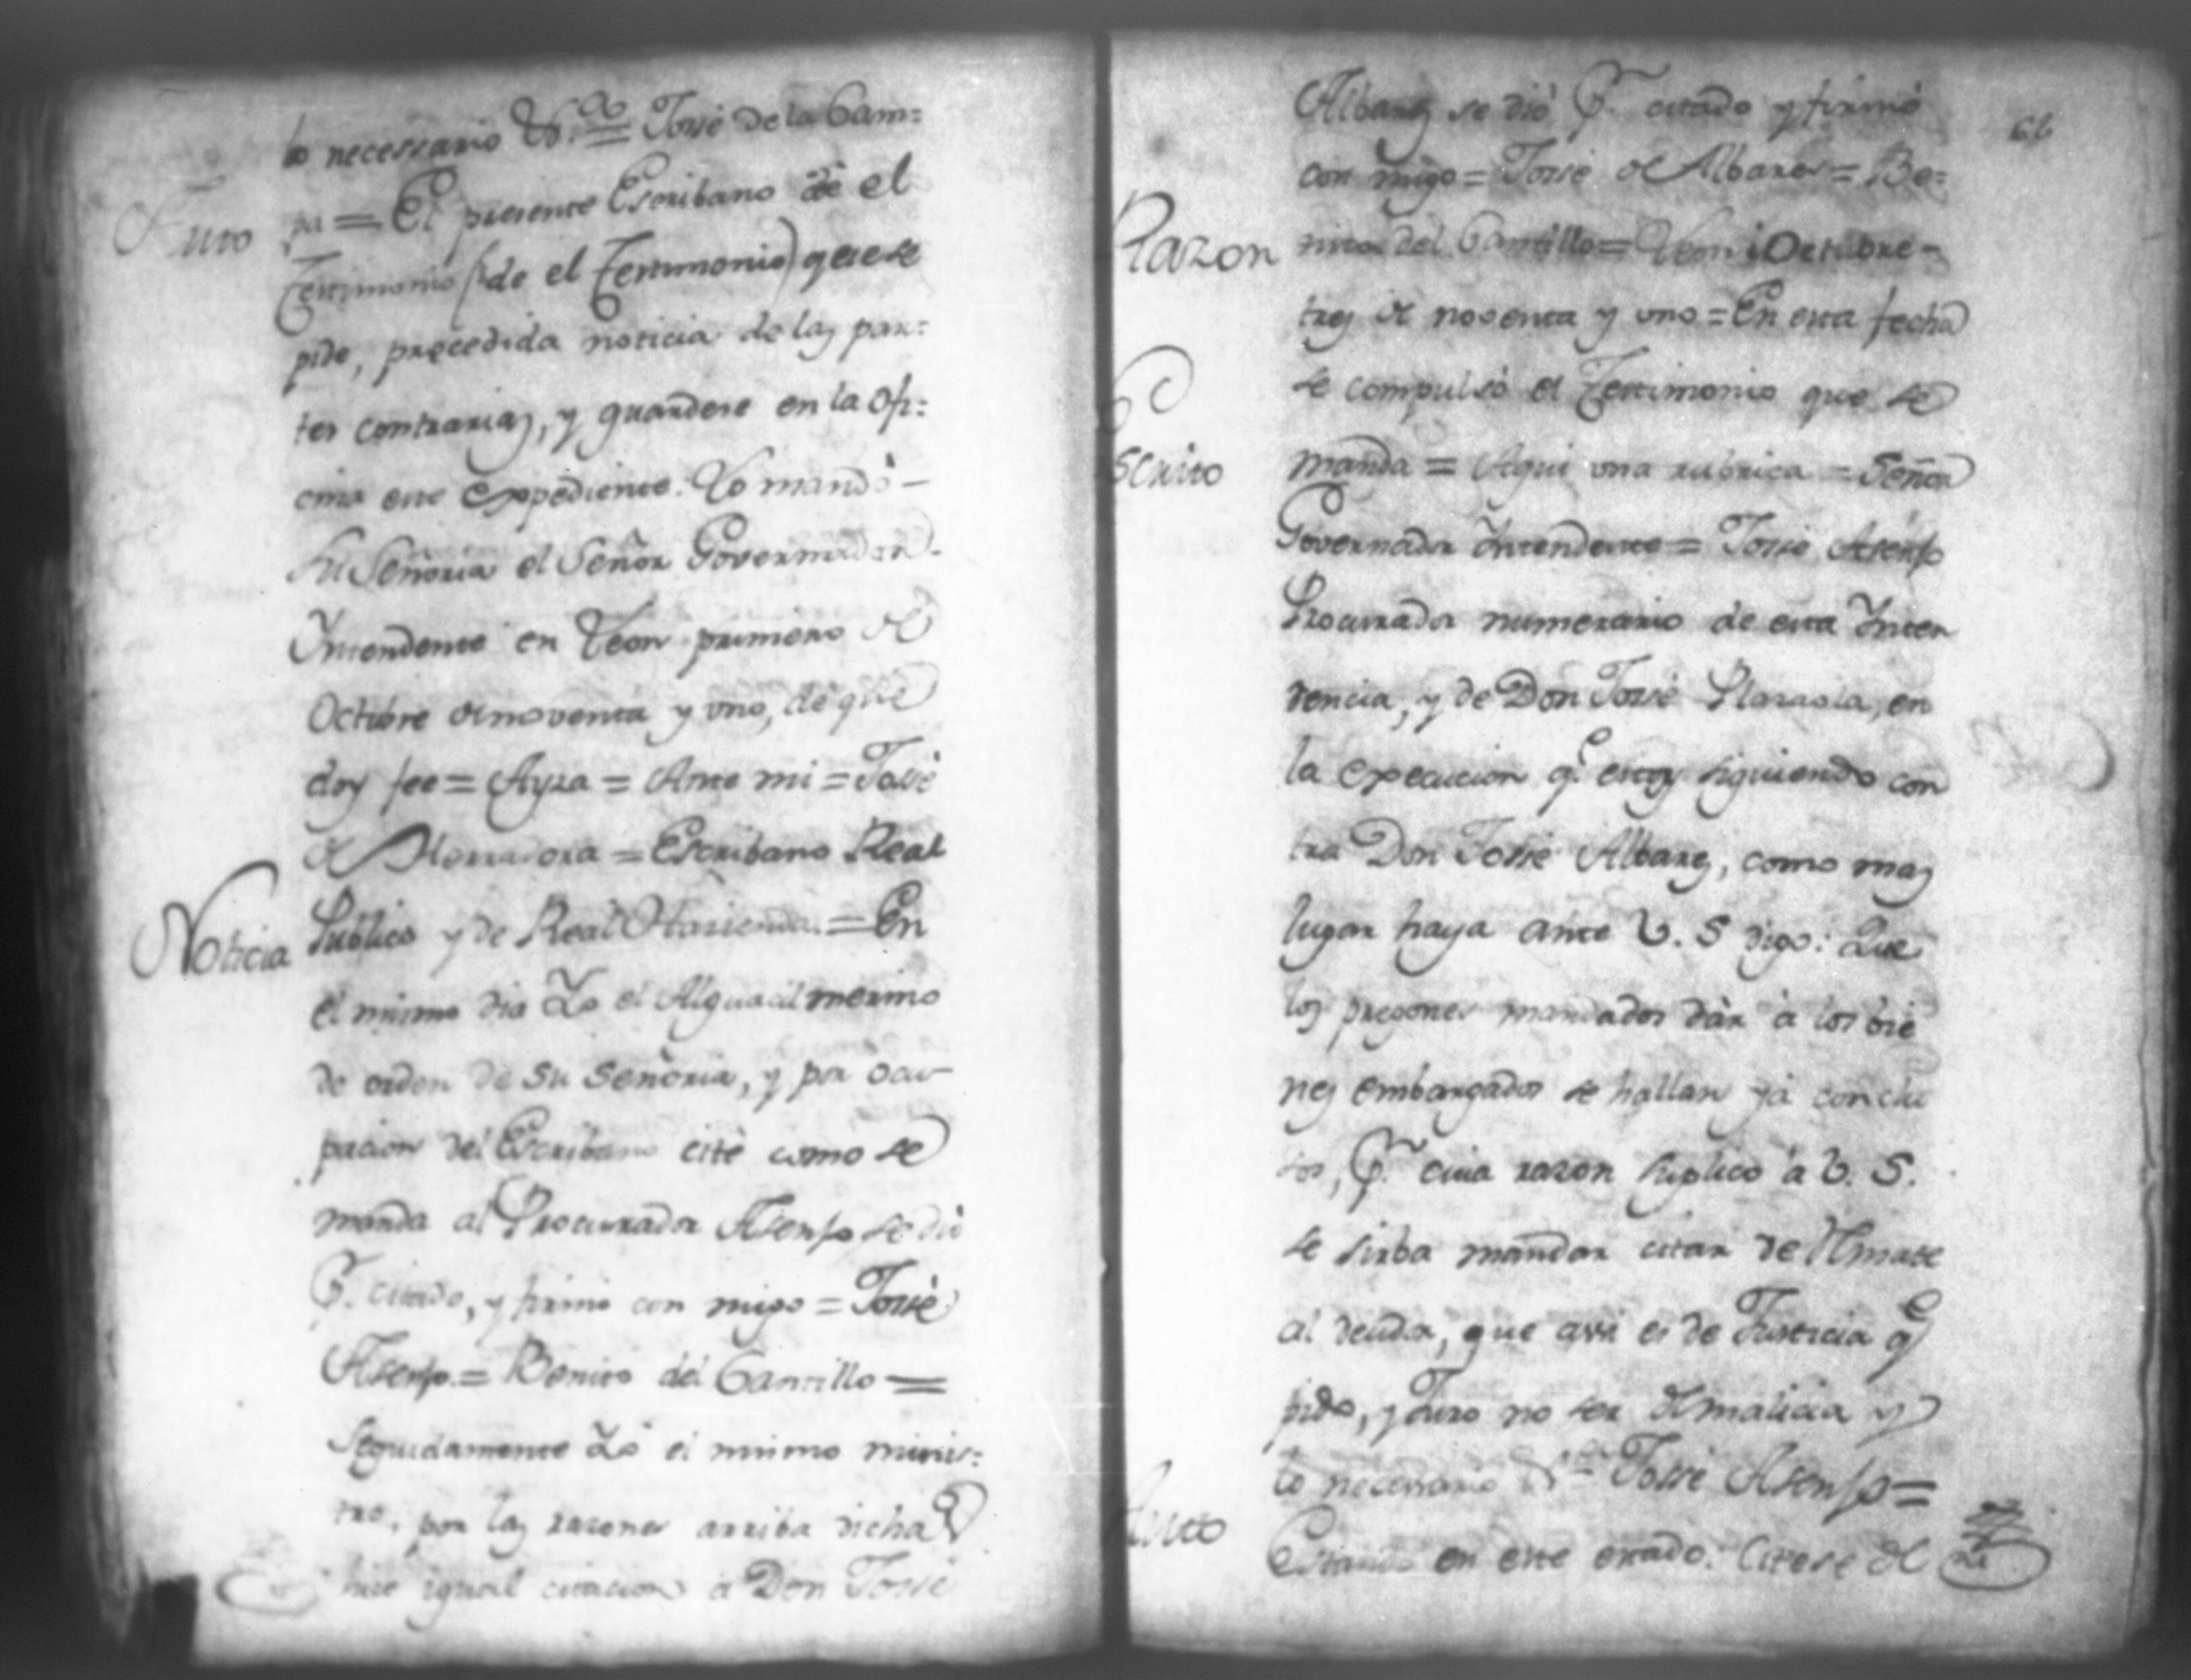 lo necessario &c.ª = Josse de la Cam=
Auto
pa = El presente Escribano dè el
Testimonio (de el Testimonio) que se
pide, precedida noticia de las par=
tes contrarias, y guardese en la ofi=
cina este expediente. Lo mandò
Su Señoria el Señor Governador
Yntendente en Leon primero de
Octubre de noventa y uno, de que
doy fee = Ayza = Ante mi = Josse
de = Escribano Real
Noticia
Publico y de Real Hazienda = En
el mismo dia Yo el Alguacil
de orden de su Señoria, y por ocu-
pacion del Escribano citè como se
manda al Procurador Asenso se diò
P.r citado, y firmò con migo = Josse
Asenso = Benito del Cantillo =
Seguidamente Yo el mismo minis=
tro, por las razones arriba dichas
hice igual citacion à Don Josse
61
Albarez se diò P.r citado y firmò
con migo = Josse de Albarez = Be=
Razon
nito del Cantillo = Leon i Octubre
tres de noventa y uno = En esta fecha
se compulsò el Testimonio que se
Escrito
manda = Aqui una rubrica = Señor
Governador Yntendente = Josse Asenso
Procurador numerario de esta Ynten
dencia, y de Don Josse en
la execucion q.e estoy siguiendo con
tra Don Josse Albarez, como mas
lugar haya ante V. S digo: Que
los pregones mandados dàr à los bie
nes embargados se hallan yà conclu
sos, P.r cuia razon suplico à V. S.
se sirba mandar citar de Rmate
al deudor, que assi es de Justicia q.e
pido, y Juro no ser de malicia y
lo necessario &.ª Josse Asenso =
Auto
Estando en este estado: Citese de